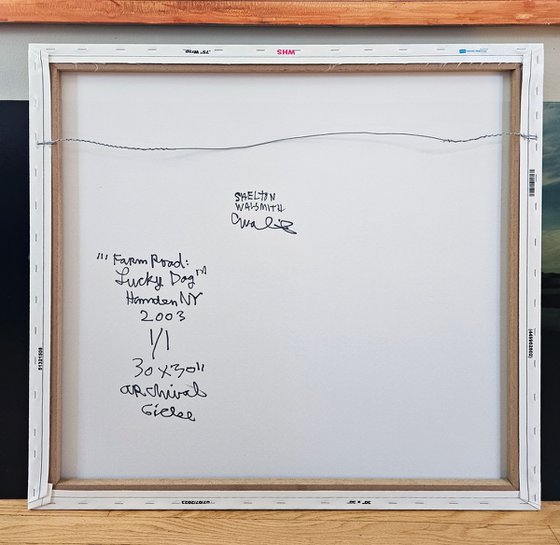 .75" Wrap
WHS
SHELTON
WALSMITH
"'Farm Road:
Lucky Dog'"
Hamden NY
2003
1/1
30 x 30"
archival
Giclee
30" x 30"